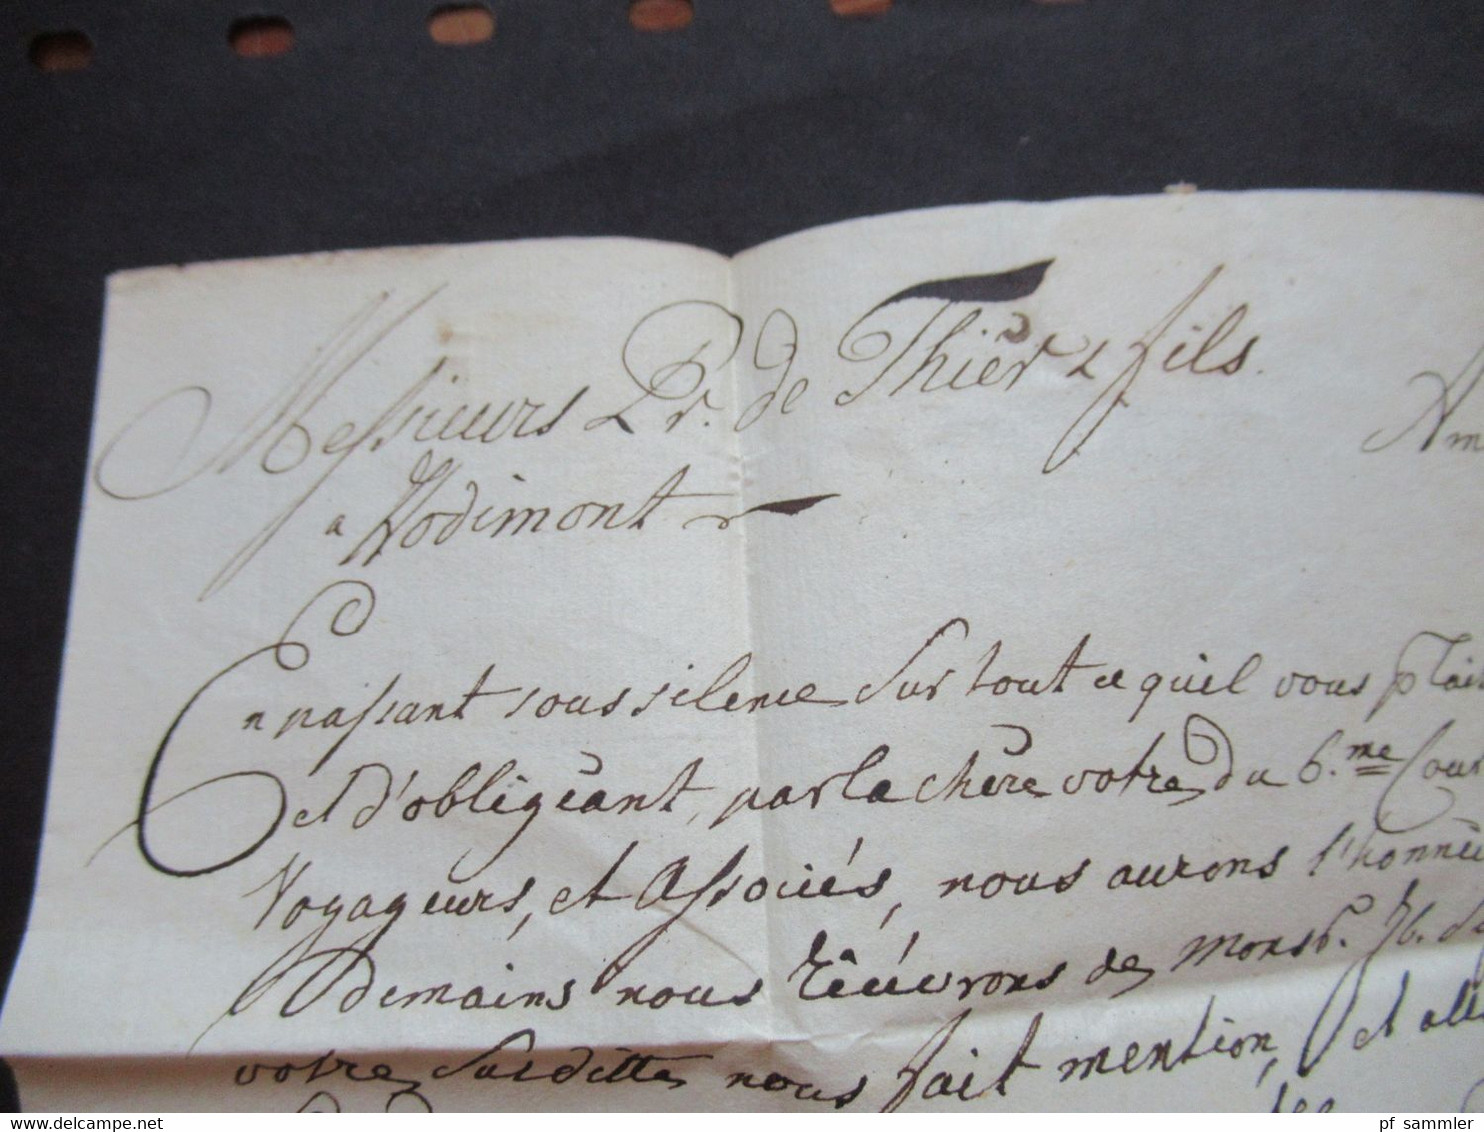 Messieurs Pr. de Thiér & fils.
Am
a Hodimont
En passant sous silence Sur tout ce quil vous plait
et d'obligéant, par la chére votre du 6.me Cour
Voyageurs, et Associés, nous aurons l'honnêu
Demains nous
votre Susditte nous fait mention, et
pf sammler